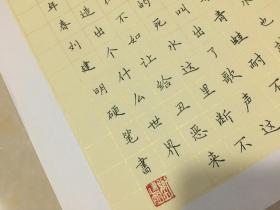 也
青蛙耐不
叫出了歌声这
的死水这里断不
不如让给丑恶来
造出个什么世界
年春刘建明硬笔書